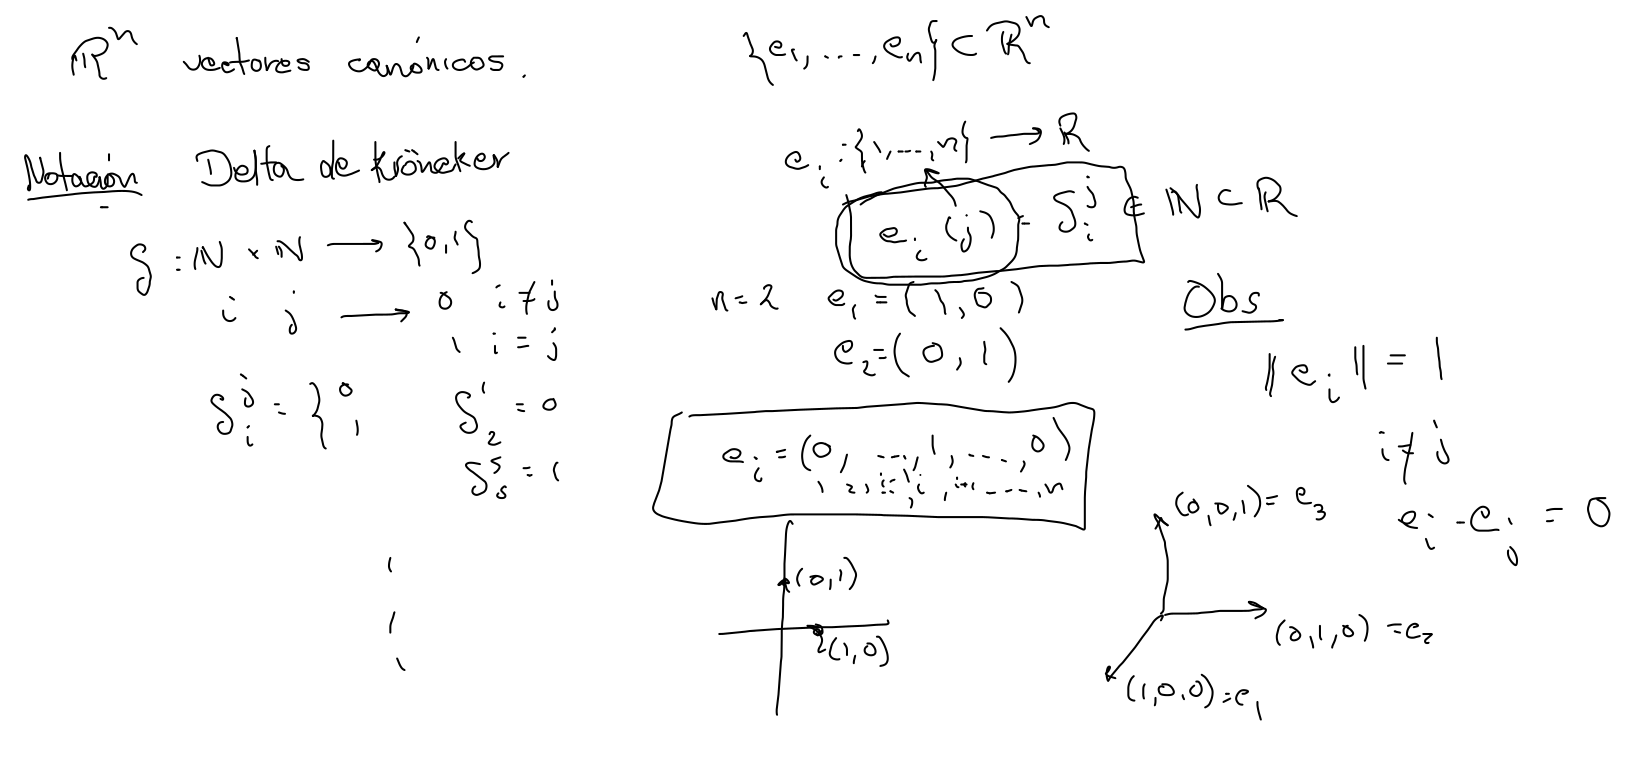 ℝⁿ vectores canónicos.
Notación Delta de Kröneker
δ : ℕ × ℕ → {0,1}
i j → 0 i ≠ j
1 i = j
δᵢʲ = { 0, 1
δ₂¹ = 0
δ₅⁵ = 1
{e₁, ..., eₙ} ⊂ ℝⁿ
eᵢ : {1, ..., n} → ℝ
eᵢ(j) = δᵢʲ ∈ ℕ ⊂ ℝ
n = 2 e₁ = (1, 0)
e₂ = (0, 1)
eᵢ = (0, ..., 1, ..., 0)
1, 2, i-1, i, i+1, ..., n
(0,1)
(1,0)
Obs
‖eᵢ‖ = 1
i ≠ j
eᵢ · eⱼ = 0
(0,0,1) = e₃
(0,1,0) = e₂
(1,0,0) = e₁